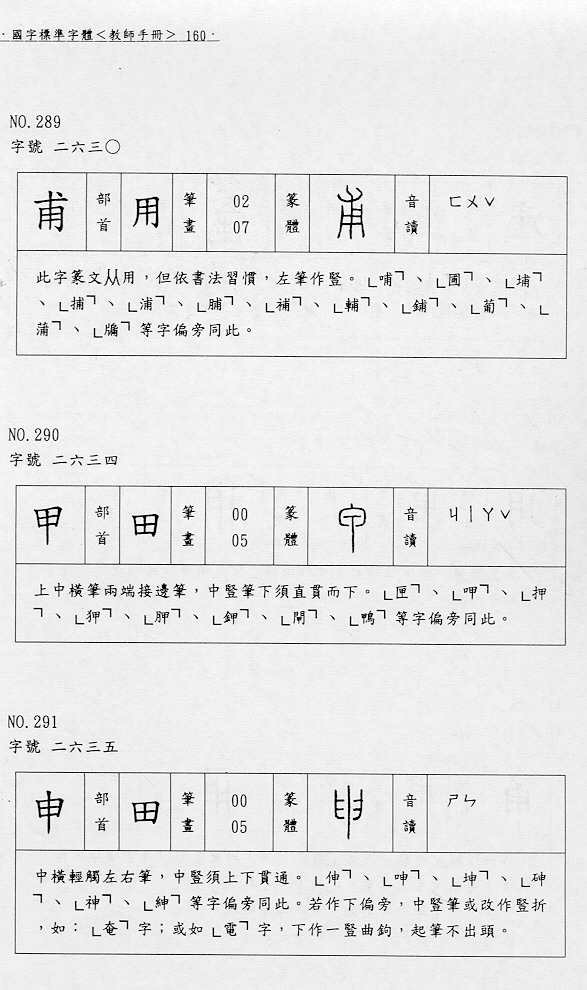 ·國字標準字體＜教師手冊＞ 160·
NO.289
字號 二六三〇
甫 部首 用 筆畫 02 07 篆體 音讀 ㄈㄨˇ
此字篆文从用，但依書法習慣，左筆作豎。「哺」、「圃」、「埔」
、「捕」、「浦」、「脯」、「補」、「輔」、「鋪」、「葡」、「
蒲」、「牖」等字偏旁同此。
NO.290
字號 二六三四
甲 部首 田 筆畫 00 05 篆體 音讀 ㄐㄧㄚˇ
上中橫筆兩端接邊筆，中豎筆下須直貫而下。「匣」、「呷」、「押
」、「狎」、「胛」、「鉀」、「閘」、「鴨」等字偏旁同此。
NO.291
字號 二六三五
申 部首 田 筆畫 00 05 篆體 音讀 ㄕㄣ
中橫輕觸左右筆，中豎須上下貫通。「伸」、「呻」、「坤」、「砷
」、「神」、「紳」等字偏旁同此。若作下偏旁，中豎筆或改作豎折
，如：「奄」字；或如「電」字，下作一豎曲鉤，起筆不出頭。